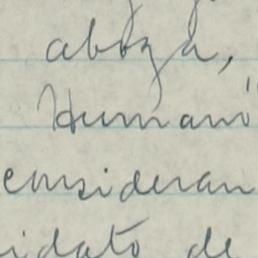 aboga,
Humano"
consideran
idato de